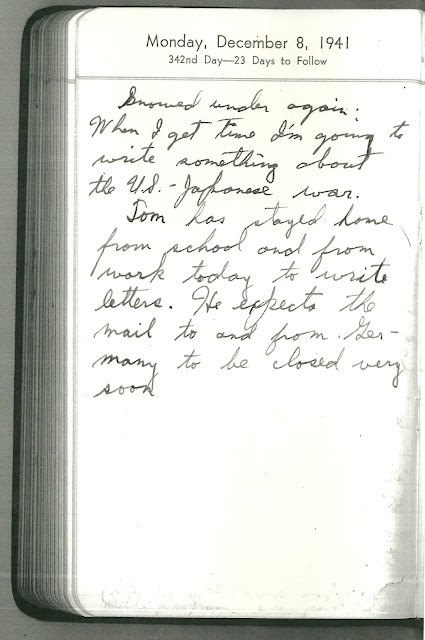 Monday, December 8, 1941
342nd Day—23 Days to Follow
Snowed under again.
When I get time I'm going to
write something about
the U.S.-Japanese war.
Tom has stayed home
from school and from
work today to write
letters. He expects the
mail to and from Ger-
many to be closed very
soon